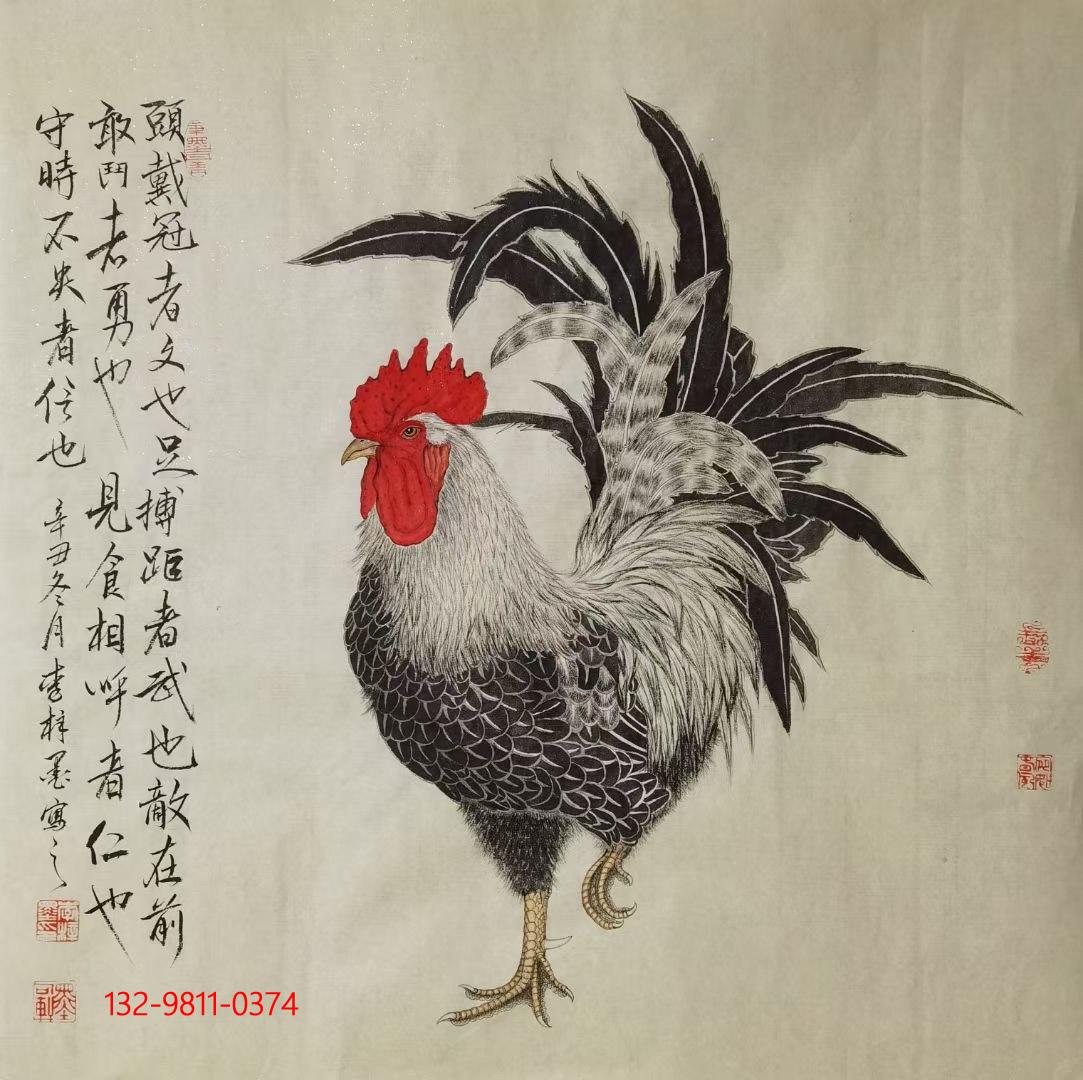 頭戴冠者文也足搏距者武也敵在前
敢鬥者勇也見食相呼者仁也
守時不失者信也
辛丑冬月李梓墨寫之
132-9811-0374